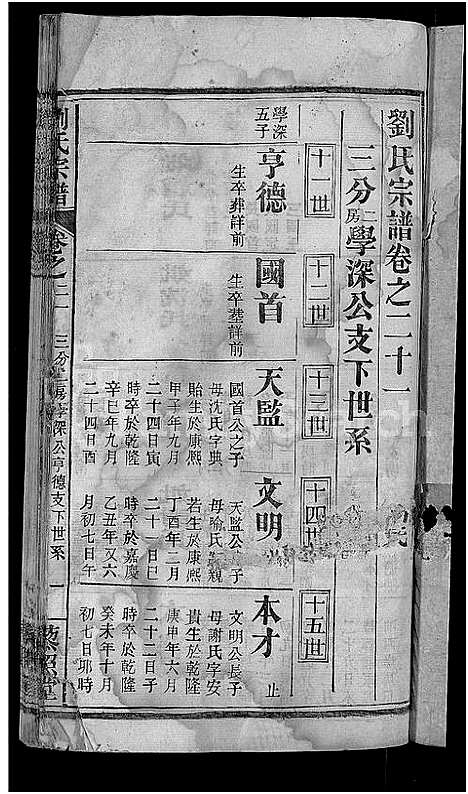 劉氏宗譜卷之二十一
三分二房學深公支下世系
十一世
十二世
十三世
十四世
十五世
學深五子
亨德
生卒葬詳前
國首
生卒塟詳前
天監
國首公之子
母沈氏字典
貽生於康熙
甲子年九月
二十四日寅
時卒於乾隆
辛巳年九月
二十四日酉
文明
天監公長子
母喻氏親
若生於康熙
丁酉年二月
二十一日巳
時卒於嘉慶
乙丑年又六
月初七日午
本才
止
文明公長子
母謝氏字安
貴生於乾隆
庚申年六月
二十二日子
時卒於乾隆
癸未年十月
初七日卯時
劉氏宗譜
卷之二一
三分二房學深公亨德支下世系
一